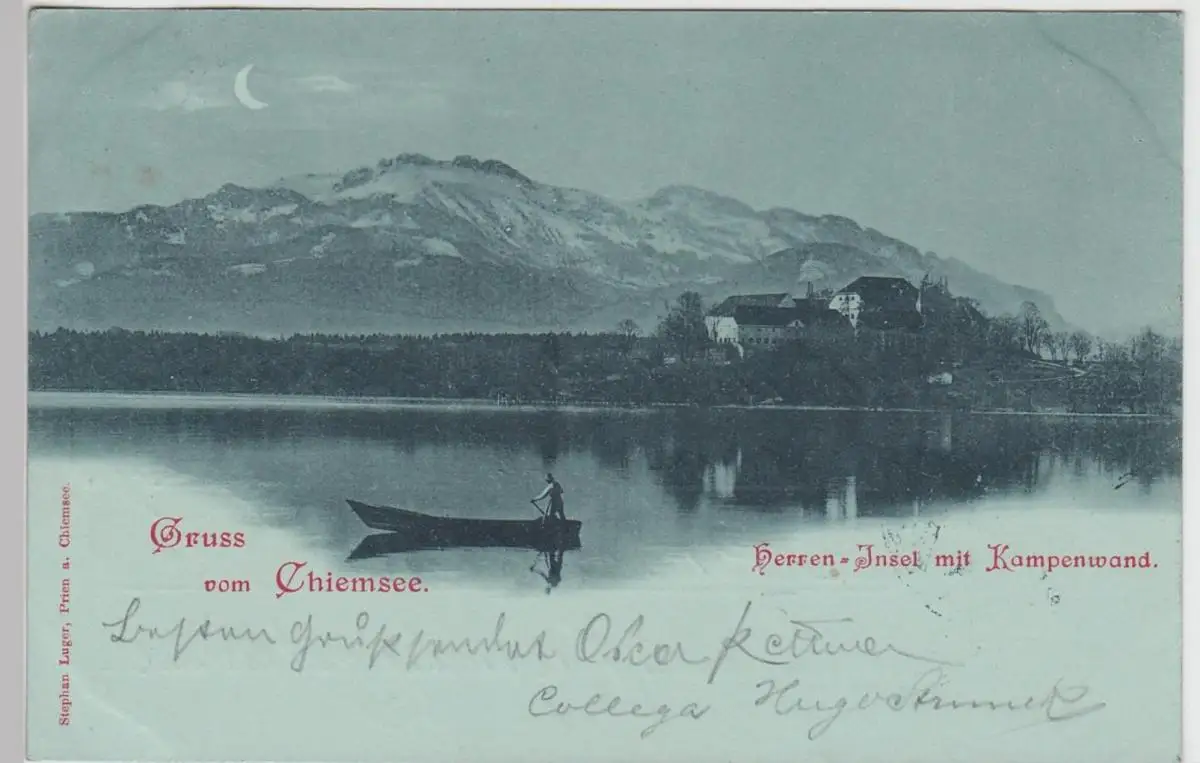 Gruss
vom Chiemsee.
Herren-Insel mit Kampenwand.
Stephan Luger, Prien a. Chiemsee.
Besten Gruß sendet Oscar
Collega Hugo